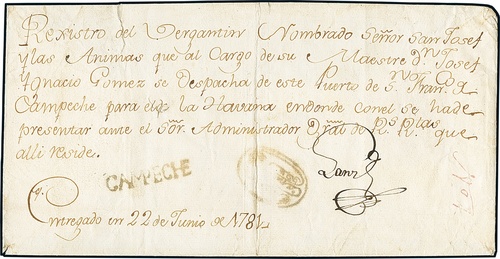 Rexistro del Vergantin Nombrado Señor San Josef
y las Animas que al Cargo de su Maestre dn. Josef
Ygnacio Gomez se Despacha de este Puerto de Sn. Franco. de
Campeche para el de la Havana endonde con el se ha de
presentar ante el Sōr. Administrador Gral de Rs. Rtas que
alli reside.
CAMPECHE
Entregado en 22 de Junio de 1781